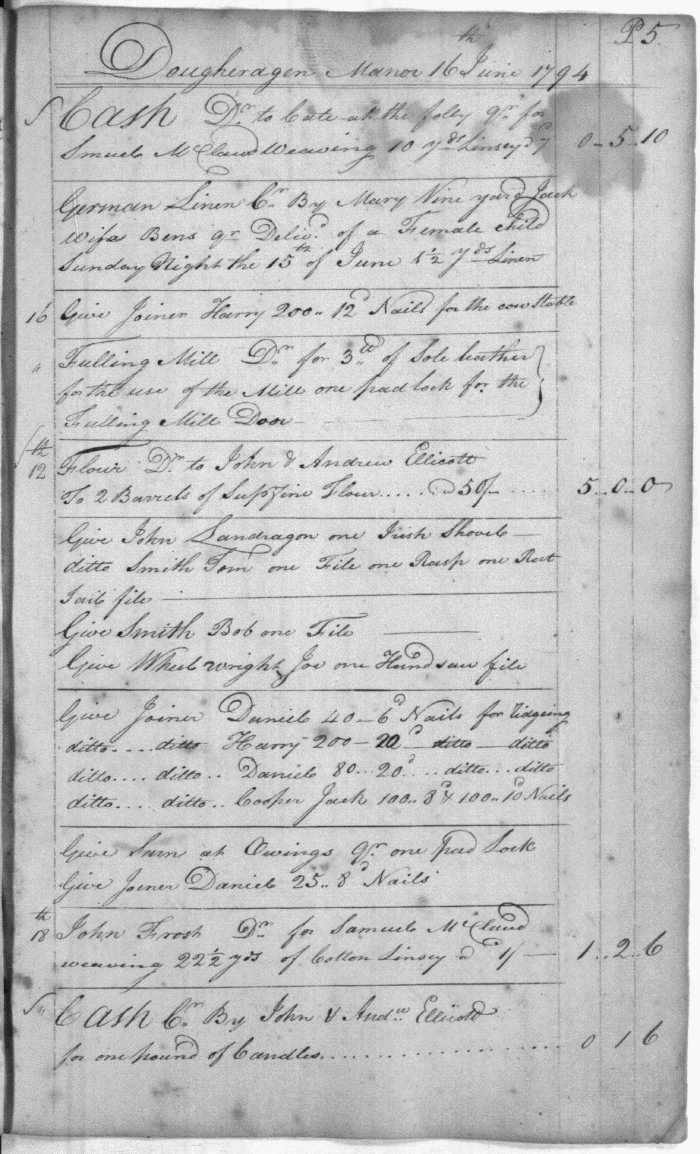 P5.
Dougheragen Manor 16th June 1794
Cash Dr. to Cate at the folly qr. for
Smuel McClaud Weaving 10 yds Linsey @ 7d 0-5-10
German Linen Cr. By Mary Nine yard Jack
wife Bens qr Delivd. of a Female child
Sunday Night the 15th of June 1½ yds Linen
16 Give Joiner Harry 200.. 12d Nails for the cow Stable
" Fulling Mill Dr. for 3 lb of Sole leather
for the use of the Mill one pad lock for the
Fulling Mill Door
12th Flour Dr. to John & Andrew Ellicott
To 2 Barrels of Supfine Flour.... @ 50/- .... 5..0..0
Give John Landragon one Irish Shovel
ditto Smith Tom one File one Rasp one Rat
Tail file
Give Smith Bob one File
Give Wheel wright Joe one Hand saw file
Give Joiner Daniel 40-6d Nails for
ditto.... ditto Harry 200-20d ditto-ditto
ditto.... ditto.. Daniel 80..20d... ditto... ditto
ditto.... ditto.. Cooper Jack 100..8d & 100..10d Nails
Give Sam at Owings qr. one pad Lock
Give Joiner Daniel 25..8d Nails
18th John Frost Dr. for Samuel McClaud
weaving 22½ yds of Cotton Linsey @ 1/- 1..2..6
Cash Cr. By John & Andw. Ellicott
for one pound of Candles.............. 0 1 6